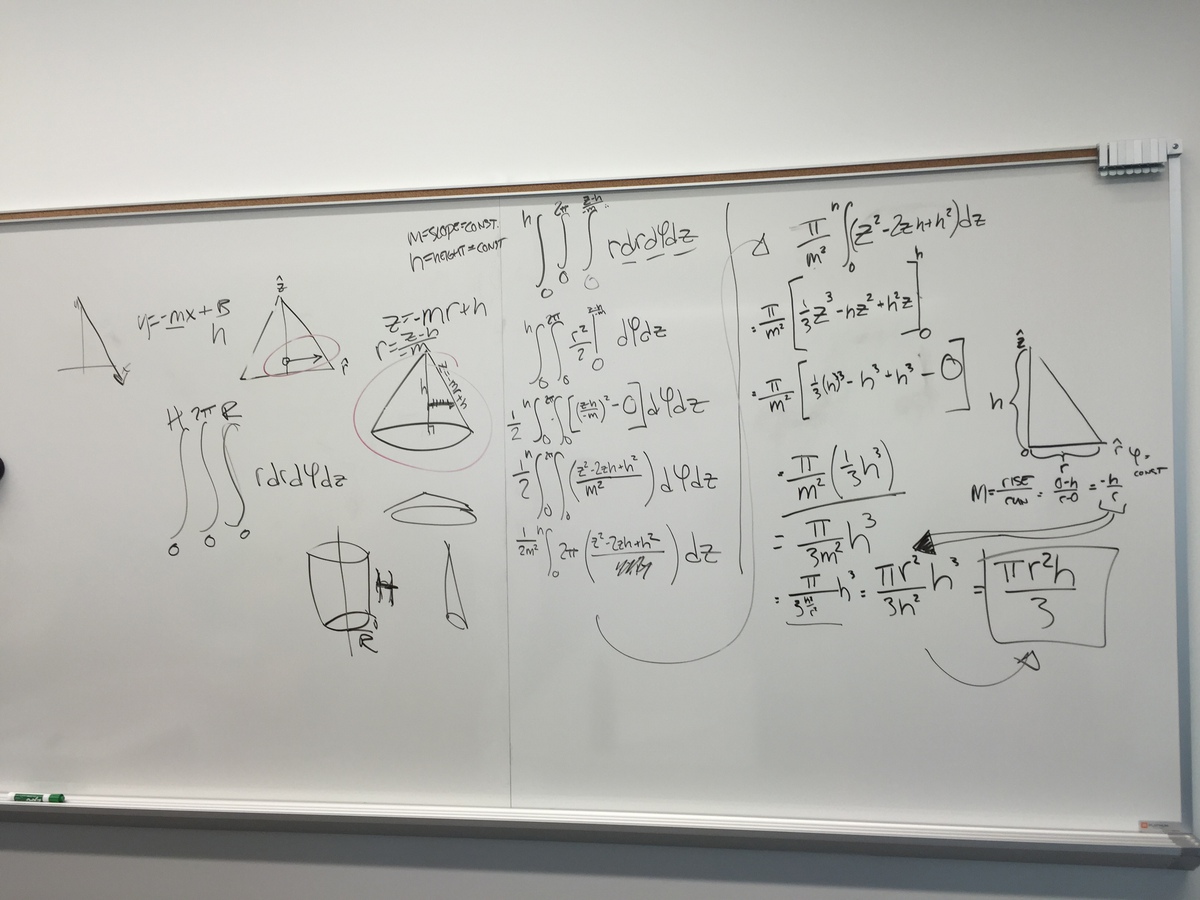 y = -mx + B
h
ẑ
r̂
H 2π R
∫ ∫ ∫ r dr dφ dz
0 0 0
H
R
m = SLOPE = CONST.
h = HEIGHT = CONST
z = -mr + h
r = (z-h)/(-m)
h
z = -mr + h
∫₀^h ∫₀^2π ∫₀^((z-h)/(-m)) r dr dφ dz
∫₀^h ∫₀^2π r²/2 |₀^((z-h)/(-m)) dφ dz
1/2 ∫₀^h ∫₀^2π [((z-h)/(-m))² - 0] dφ dz
1/2 ∫₀^h ∫₀^2π ((z² - 2zh + h²)/m²) dφ dz
1/(2m²) ∫₀^h 2π (z² - 2zh + h²) dz
π/m² ∫₀^h (z² - 2zh + h²) dz
= π/m² [1/3 z³ - hz² + h²z]₀^h
= π/m² [1/3 (h)³ - h³ + h³ - 0]
= π/m² (1/3 h³)
= π/(3m²) h³
= π/(3 h²/r²) h³ = πr²/(3h²) h³ = πr²h/3
ẑ
h
0 r r̂
φ = CONST
M = RISE/RUN = (0-h)/(r-0) = -h/r